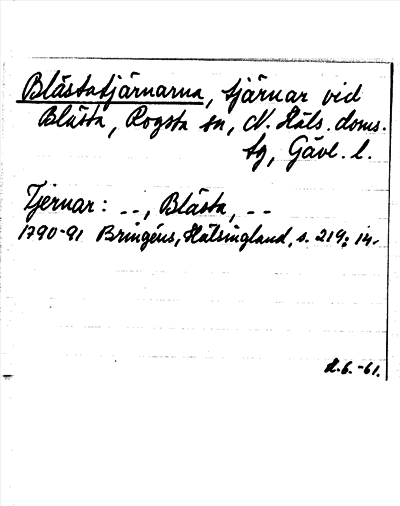 Blästatjärnarna, tjärnar vid
Blästa, Rogsta sn, N. Häls. doms.
sg, Gävl. l.
Tjernar: --, Blästa, --
1790-91 Bringéus, Hälsingland, s. 219: 14.
d. 6. -61.